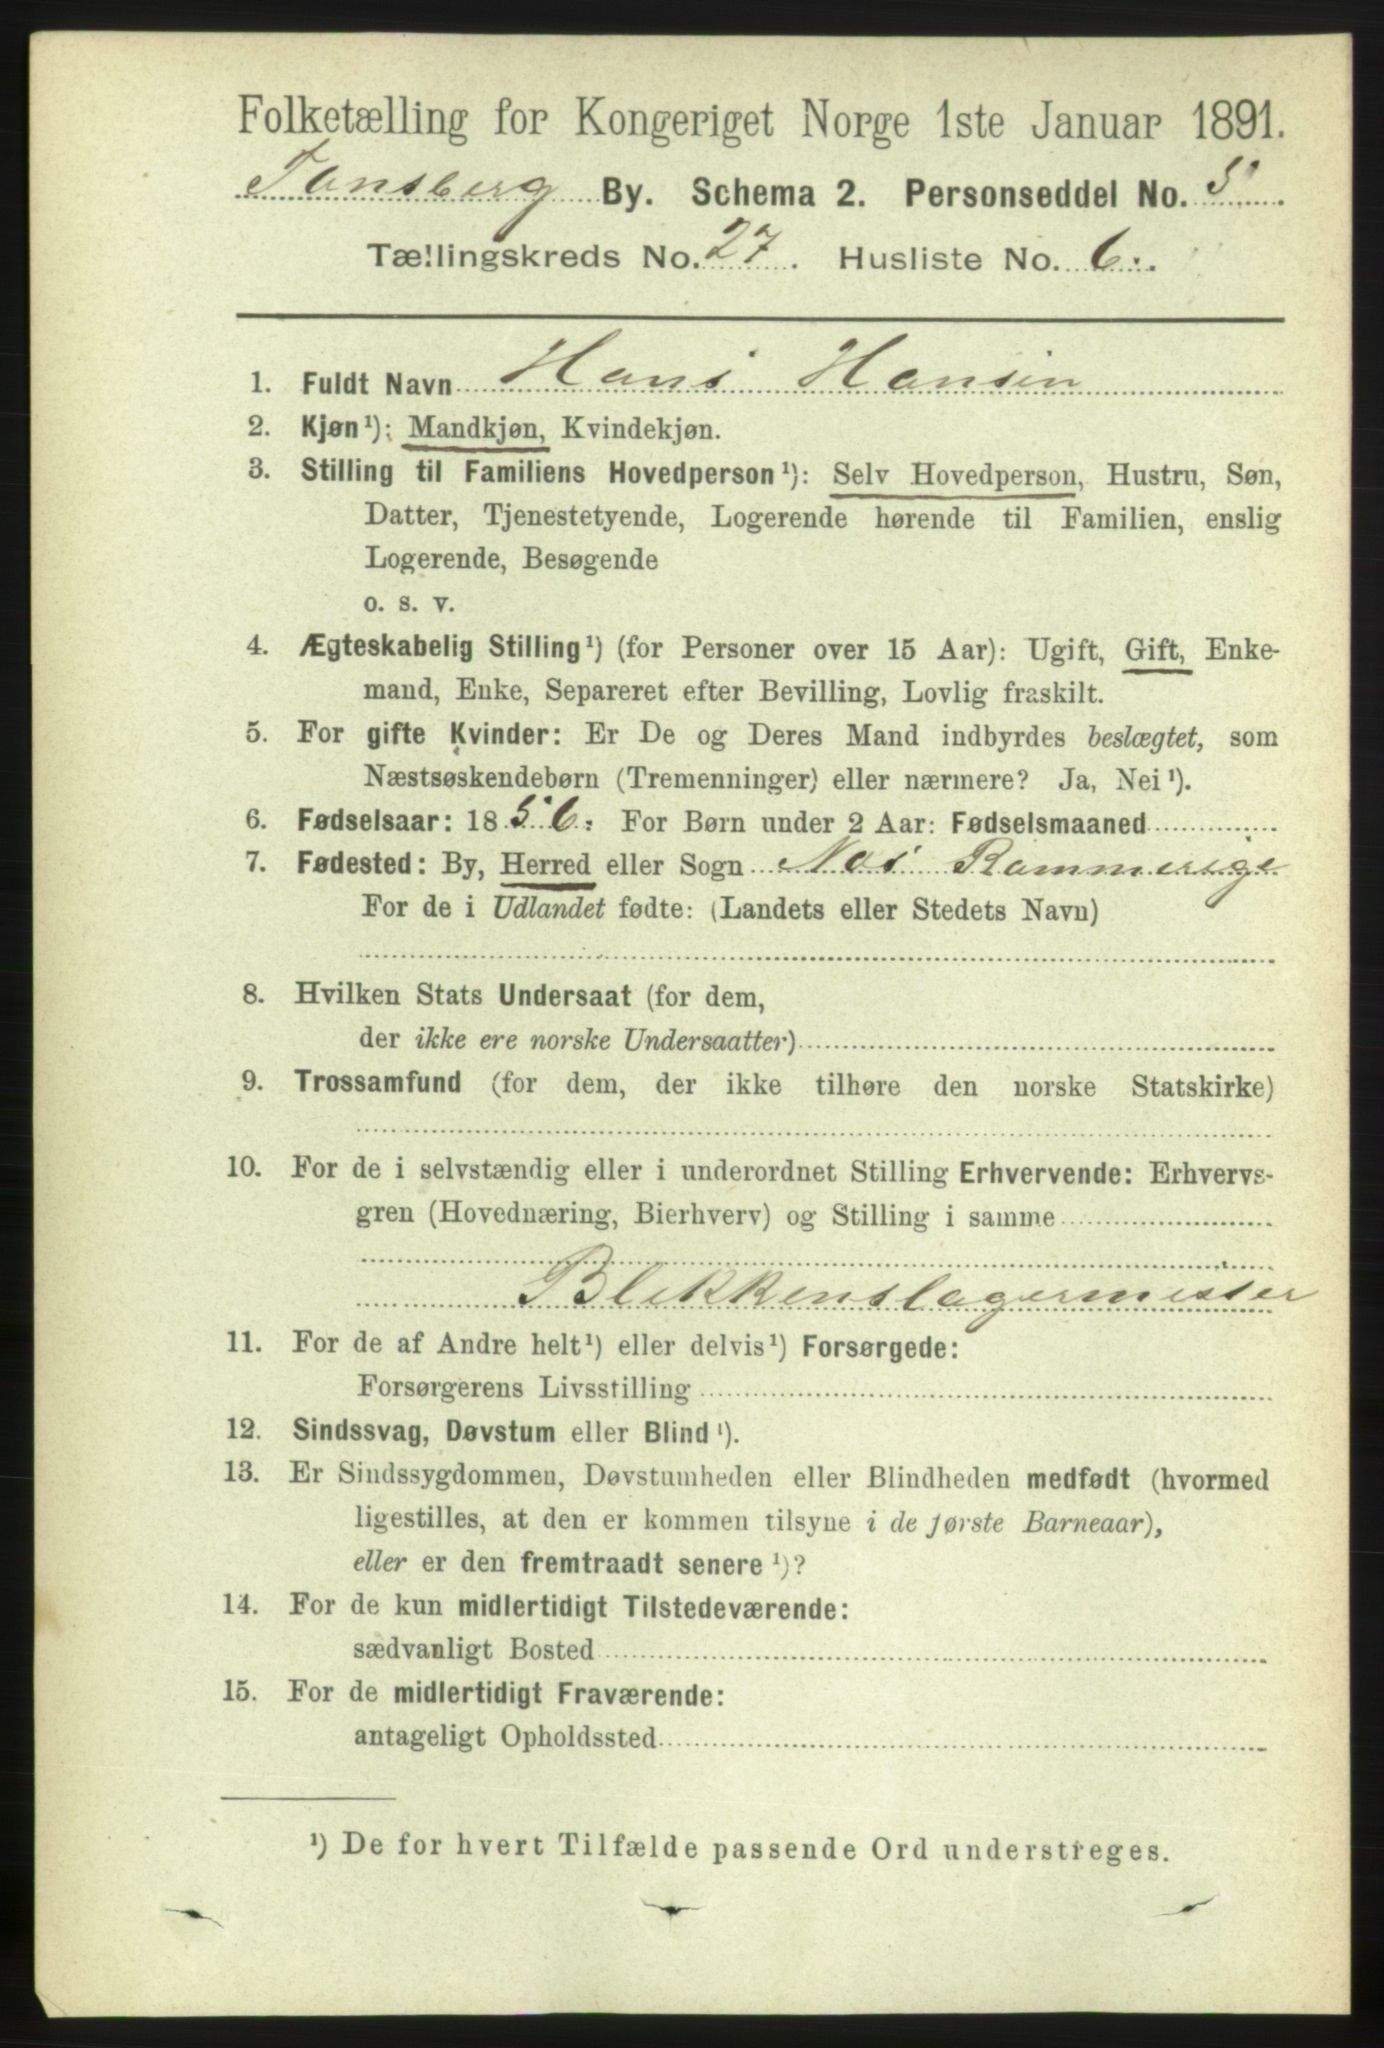 Folketælling for Kongeriget Norge 1ste Januar 1891.
Tønsberg By. Schema 2. Personseddel No. 5
Tællingskreds No. 27. Husliste No. 6.
1. Fuldt Navn Hans Hansen
2. Kjøn¹): Mandkjøn, Kvindekjøn.
3. Stilling til Familiens Hovedperson¹): Selv Hovedperson, Hustru, Søn,
Datter, Tjenestetyende, Logerende hørende til Familien, enslig
Logerende, Besøgende
o. s. v.
4. Ægteskabelig Stilling¹) (for Personer over 15 Aar): Ugift, Gift, Enke-
mand, Enke, Separeret efter Bevilling, Lovlig fraskilt.
5. For gifte Kvinder: Er De og Deres Mand indbyrdes beslægtet, som
Næstsøskendebørn (Tremenninger) eller nærmere? Ja, Nei¹).
6. Fødselsaar: 1856. For Børn under 2 Aar: Fødselsmaaned
7. Fødested: By, Herred eller Sogn Næs Rommerige
For de i Udlandet fødte: (Landets eller Stedets Navn)
8. Hvilken Stats Undersaat (for dem,
der ikke ere norske Undersaatter)
9. Trossamfund (for dem, der ikke tilhøre den norske Statskirke)
10. For de i selvstændig eller i underordnet Stilling Erhvervende: Erhvervs-
gren (Hovednæring, Bierhverv) og Stilling i samme
Blikkenslagermester
11. For de af Andre helt¹) eller delvis¹) Forsørgede:
Forsørgerens Livsstilling
12. Sindssvag, Døvstum eller Blind¹).
13. Er Sindssygdommen, Døvstumheden eller Blindheden medfødt (hvormed
ligestilles, at den er kommen tilsyne i de første Barneaar),
eller er den fremtraadt senere¹)?
14. For de kun midlertidigt Tilstedeværende:
sædvanligt Bosted
15. For de midlertidigt Fraværende:
antageligt Opholdssted
¹) De for hvert Tilfælde passende Ord understreges.